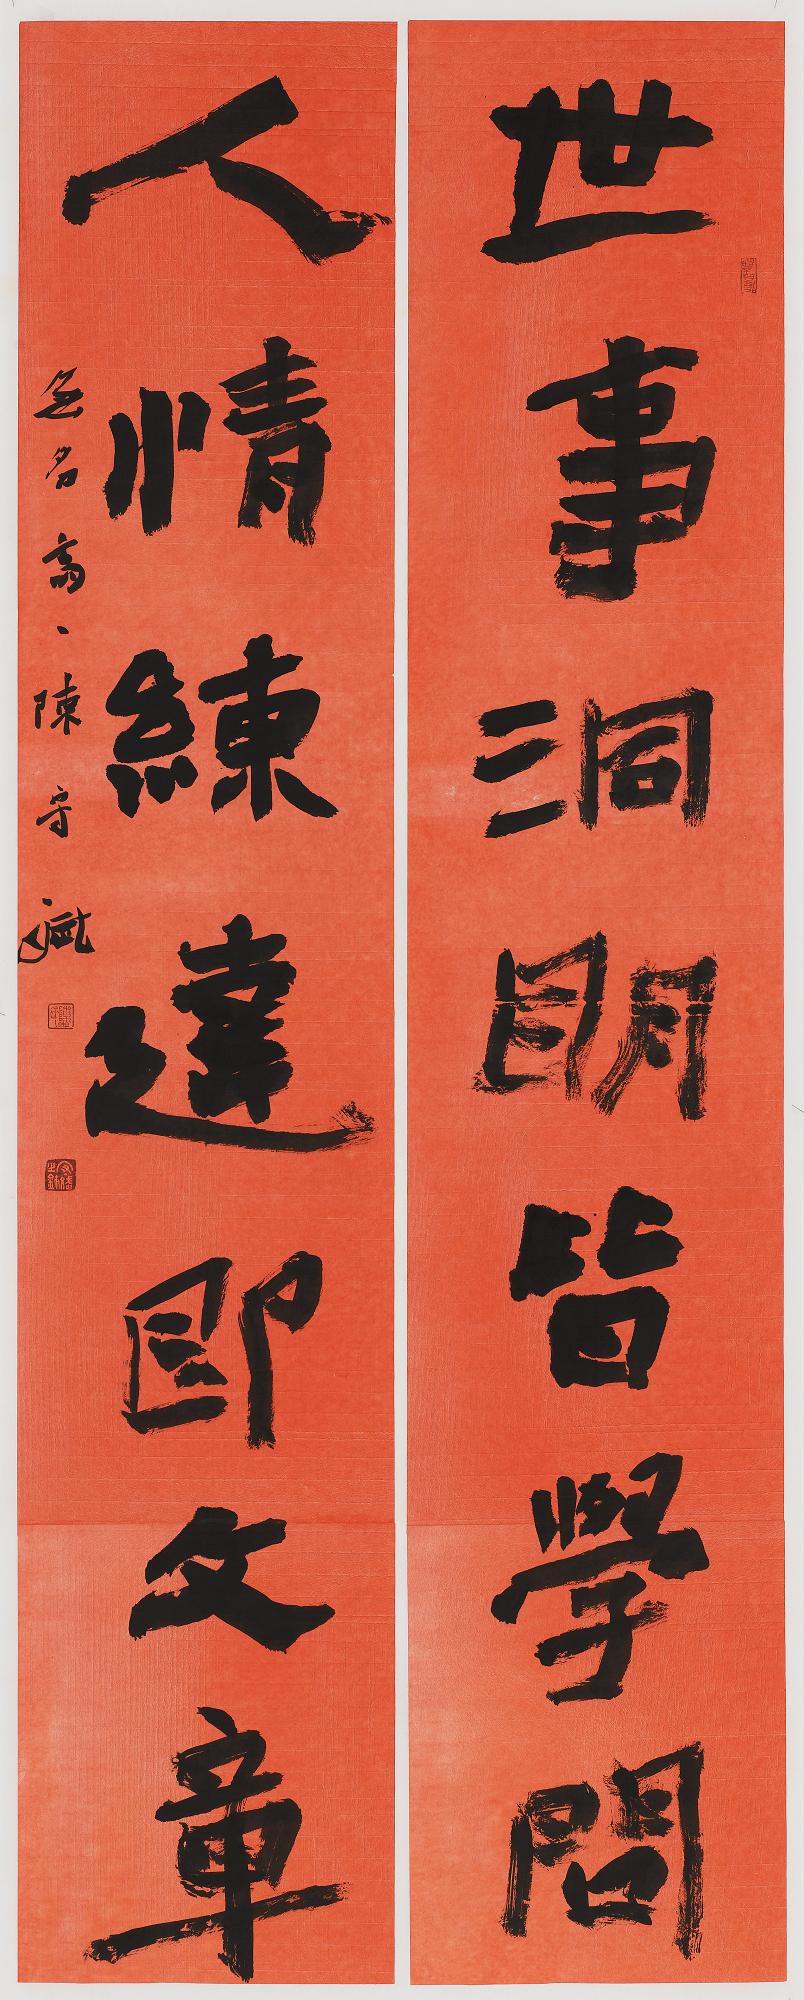 世事洞明皆學問
人情練達即文章
無名齋、陳守